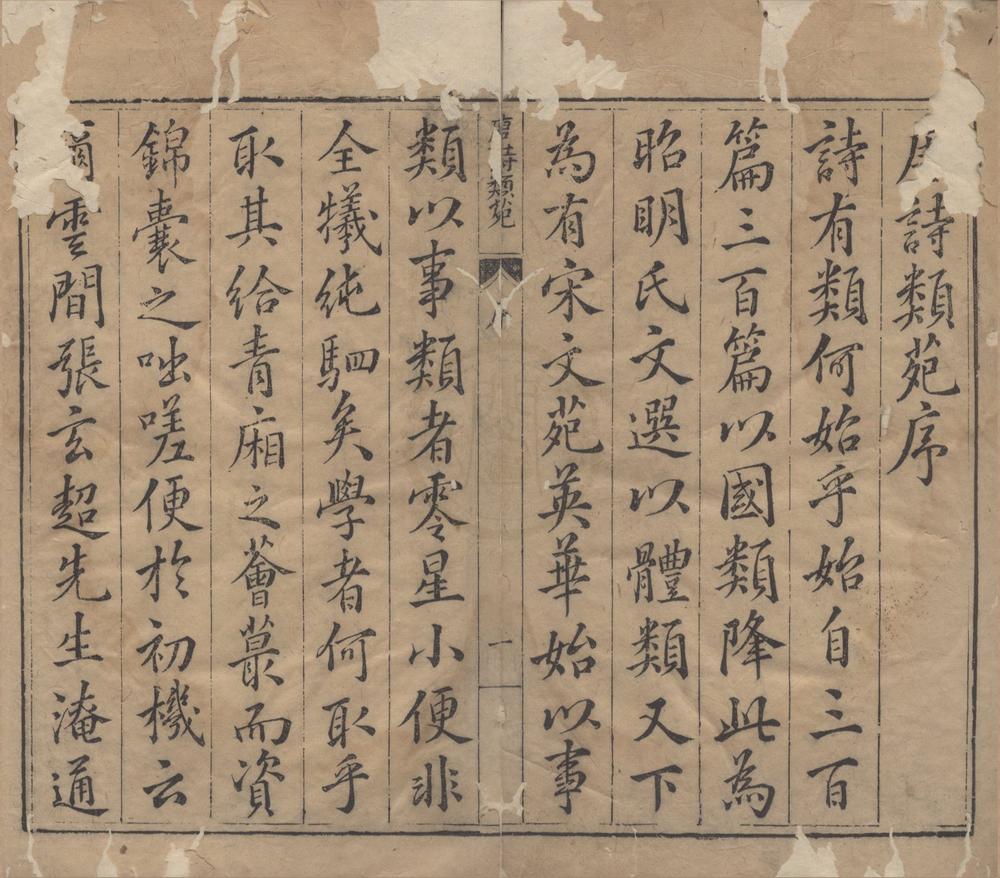 唐詩類苑序
詩有類何始乎始自三百
篇三百篇以國類降此為
昭明氏文選以體類又下
為有宋文苑英華始以事
唐詩類苑
序
一
類以事類者零星小便非
全犧純駟矣學者何取乎
取其給青廂之薈蕞而資
錦囊之咄嗟便於初機云
爾雲間張玄超先生淹通